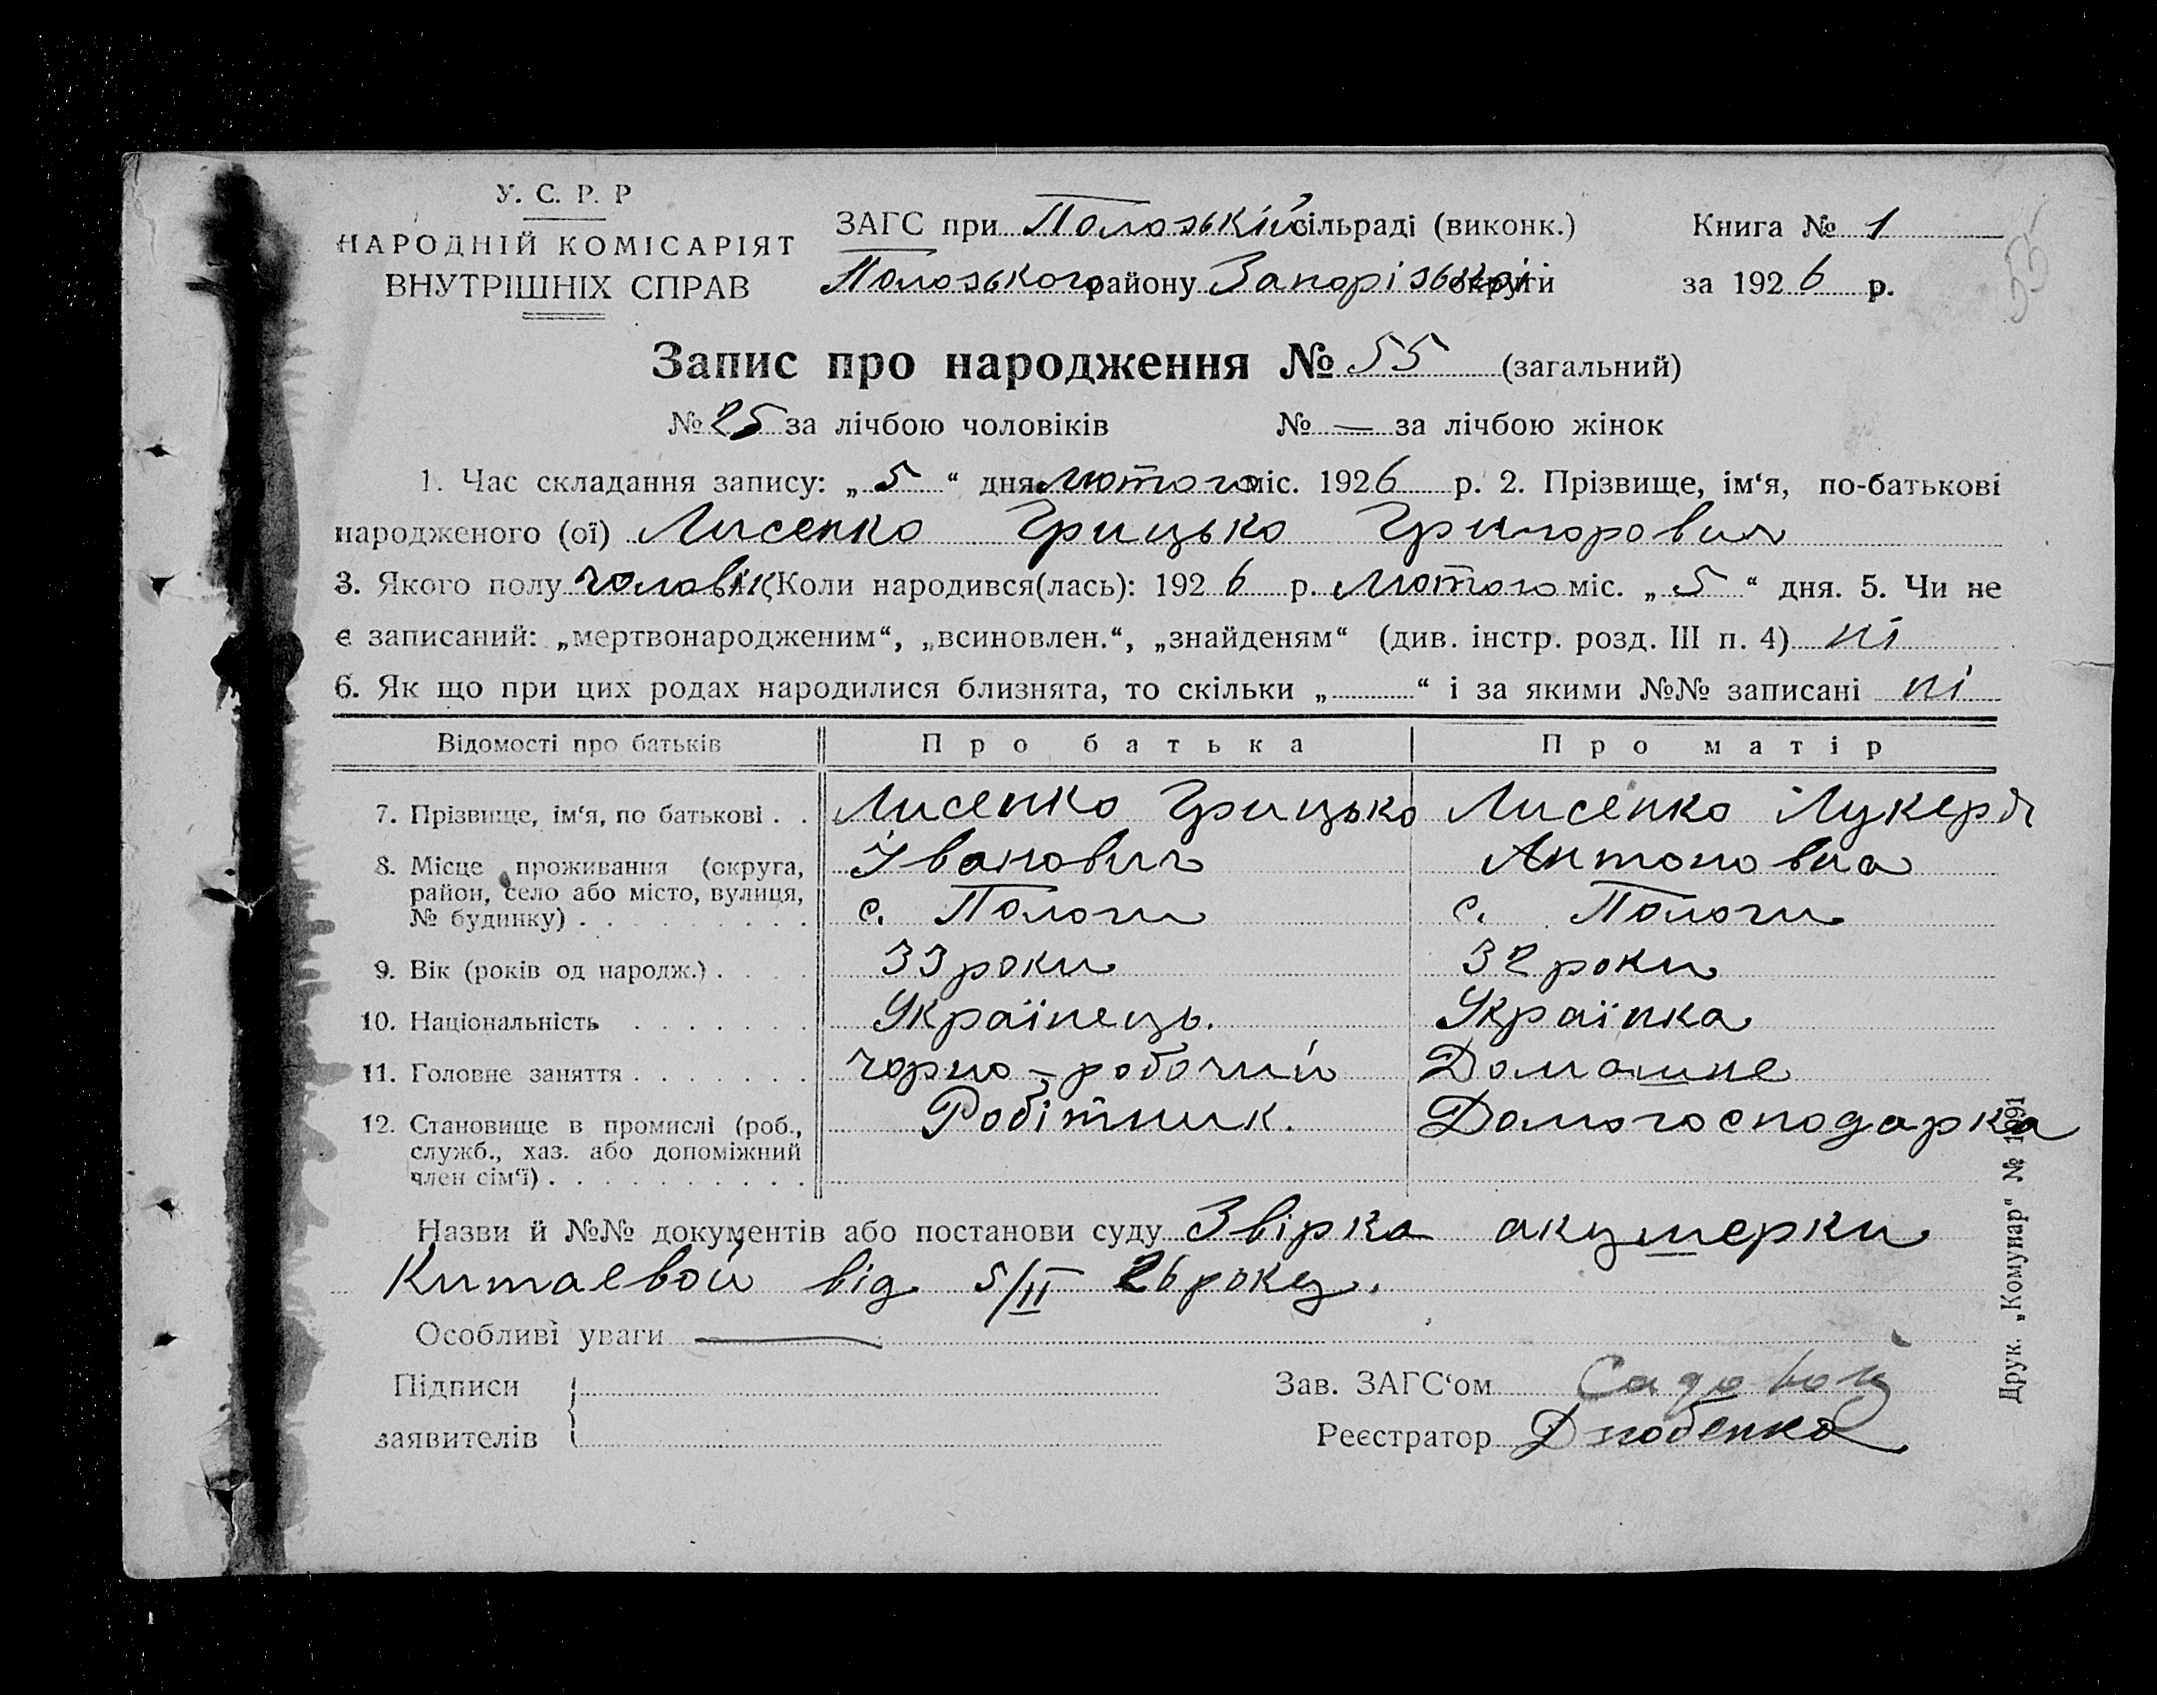 У. С. Р. Р
НАРОДНІЙ КОМІСАРІЯТ
ВНУТРІШНІХ СПРАВ
ЗАГС при Полозькій сільраді (виконк.)
Полозького району Запорізької округи
Книга № 1
за 1926 р.
55
Запис про народження № 55 (загальний)
№ 25 за лічбою чоловіків № — за лічбою жінок
1. Час складання запису: „5“ дня лютого міс. 1926 р. 2. Прізвище, ім‘я, по-батькові
народженого (ої) Лисенко Грицько Григорович
3. Якого полу чоловік 4. Коли народився(лась): 1926 р. лютого міс. „5“ дня. 5. Чи не
є записаний: „мертвонародженим“, „всиновлен.“, „знайденям“ (див. інстр. розд. III п. 4) ні
6. Як що при цих родах народилися близнята, то скільки „ “ і за якими №№ записані ні
Відомості про батьків Про батька Про матір
7. Прізвище, ім‘я, по батькові . . Лисенко Грицько Лисенко Лукерія
Іванович Антоновна
8. Місце проживання (округа,
район, село або місто, вулиця,
№ будинку) . . . . . . . . . с. Пологи с. Пологи
9. Вік (років од народж.) . . . . 33 роки 32 роки
10. Національність . . . . . . . Українець. Українка
11. Головне заняття . . . . . . . чорно-робочий Домашнє
12. Становище в промислі (роб., Робітник. Домогосподарка
служб., хаз. або допоміжний
член сім‘ї) . . . . . . . . . .
Назви й №№ документів або постанови суду Звірка акушерки
Китаевой від 5/II 26 року.
Особливі уваги —
Підписи
заявителів
Зав. ЗАГС‘ом Садовой
Реєстратор
Друк. „Комунар“ № 1091